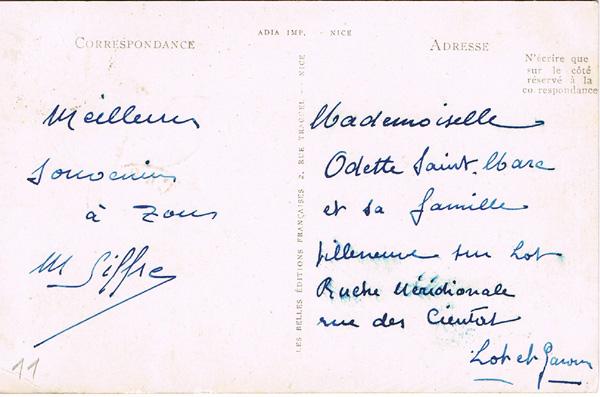 ADIA IMP. - NICE
CORRESPONDANCE
ADRESSE
N'écrire que
sur le côté
réservé à la
correspondance
Meilleurs
Souvenirs
à tous
M Siffre
LES BELLES ÉDITIONS FRANÇAISES 2, RUE TRACHEL - NICE
Mademoiselle
Odette Saint. Marc
et sa famille
Villeneuve sur Lot
Ruche Méridionale
rue des
Lot et Garonne
11